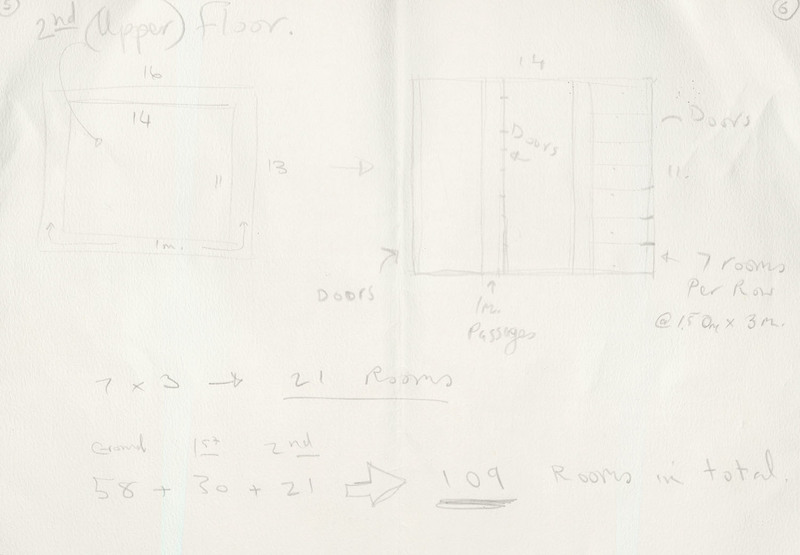 5
6
2nd (Upper) Floor.
16
14
13
11
1m.
14
Doors
Doors
11.
Doors
1m.
Passages
7 rooms
Per Row
@ 1.50m x 3m.
7 x 3 → 21 Rooms
Ground 1st 2nd
58 + 30 + 21 ⇒ 109 Rooms in total.